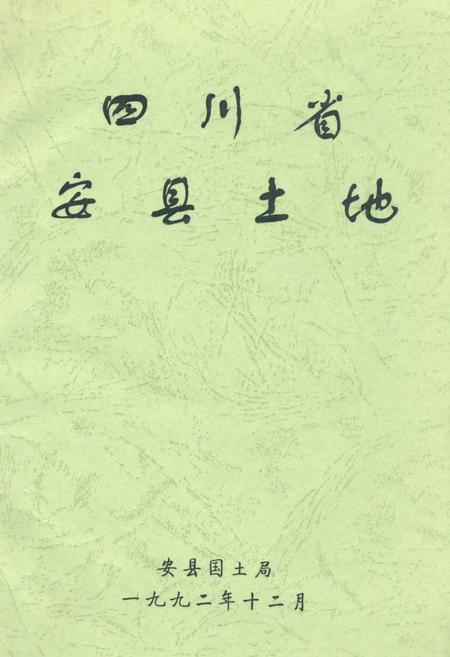 四川省
安县土地
安县国土局
一九九二年十二月